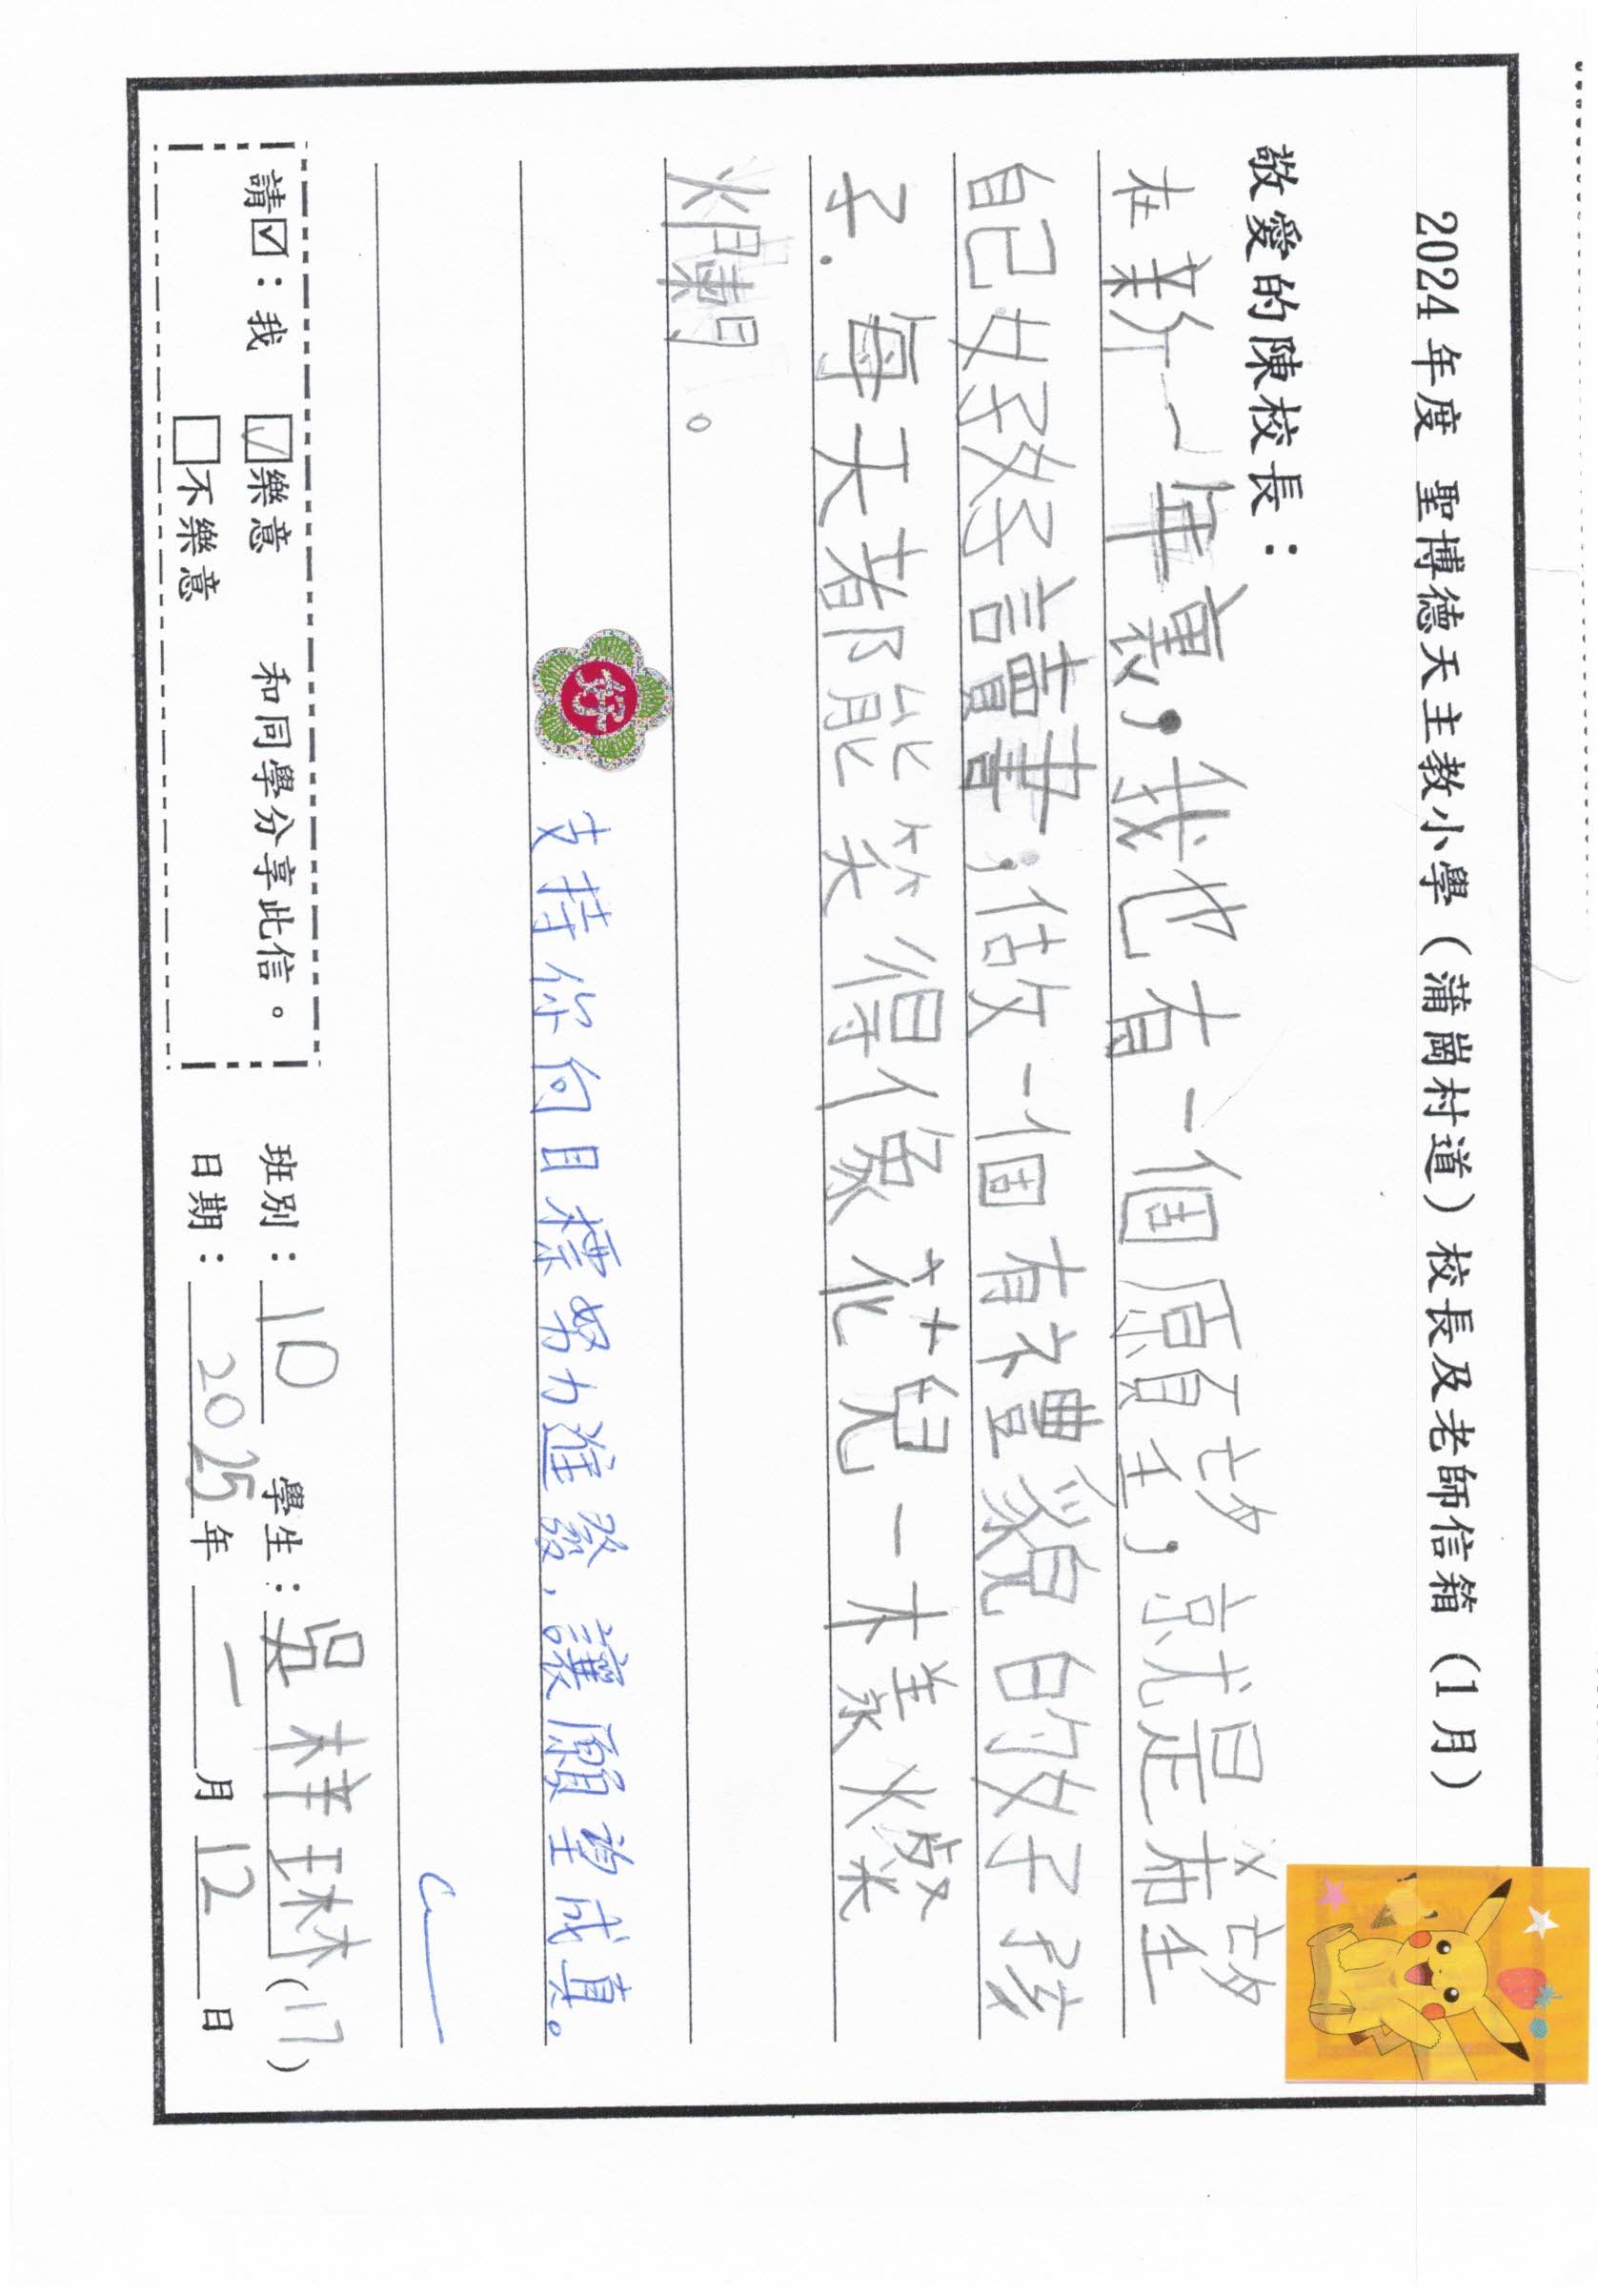 2024年度 聖博德天主教小學（蒲崗村道）校長及老師信箱（1月）
敬愛的陳校長：
在新一年裏，我也有一個願望，就是希望
自己好好讀書，做一個有禮貌的女孩
子．每天都能笑得像花兒一樣燦
爛。
好
支持你向目標努力進發，讓願望成真。
請☑：我 ☑樂意 和同學分享此信。
□不樂意
班別：1D 學生：吳梓琳(17)
日期：2025年一月12日